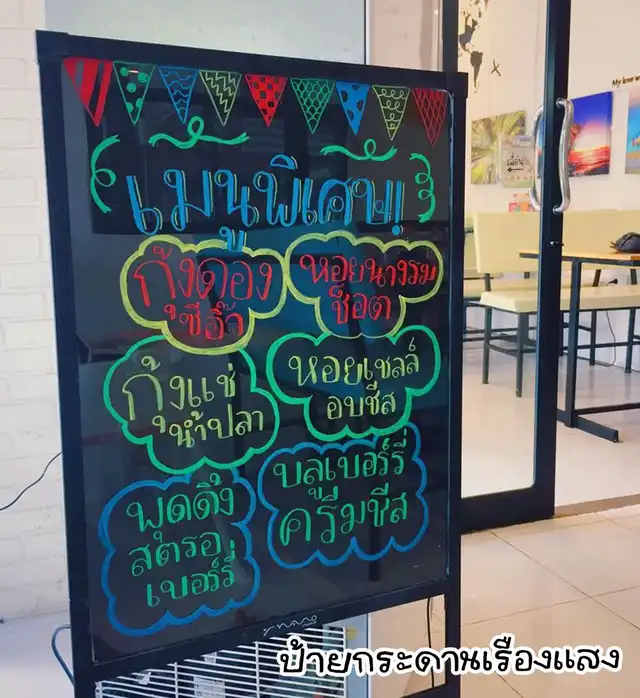 เมนูพิเศษ!
กุ้งดอง
ซีอิ๊ว
หอยนางรม
ช็อต
กุ้งแช่
น้ำปลา
หอยเชลล์
อบชีส
พุดดิ้ง
สตรอ
เบอร์รี่
บลูเบอร์รี่
ครีมชีส
ป้ายกระดานเรืองแสง